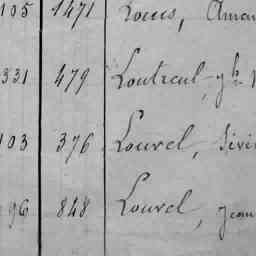 105 1471 Louis, Aman
331 479 Loutreul, 
103 376 Louvel, Sévi
96 848 Louvel, Jean